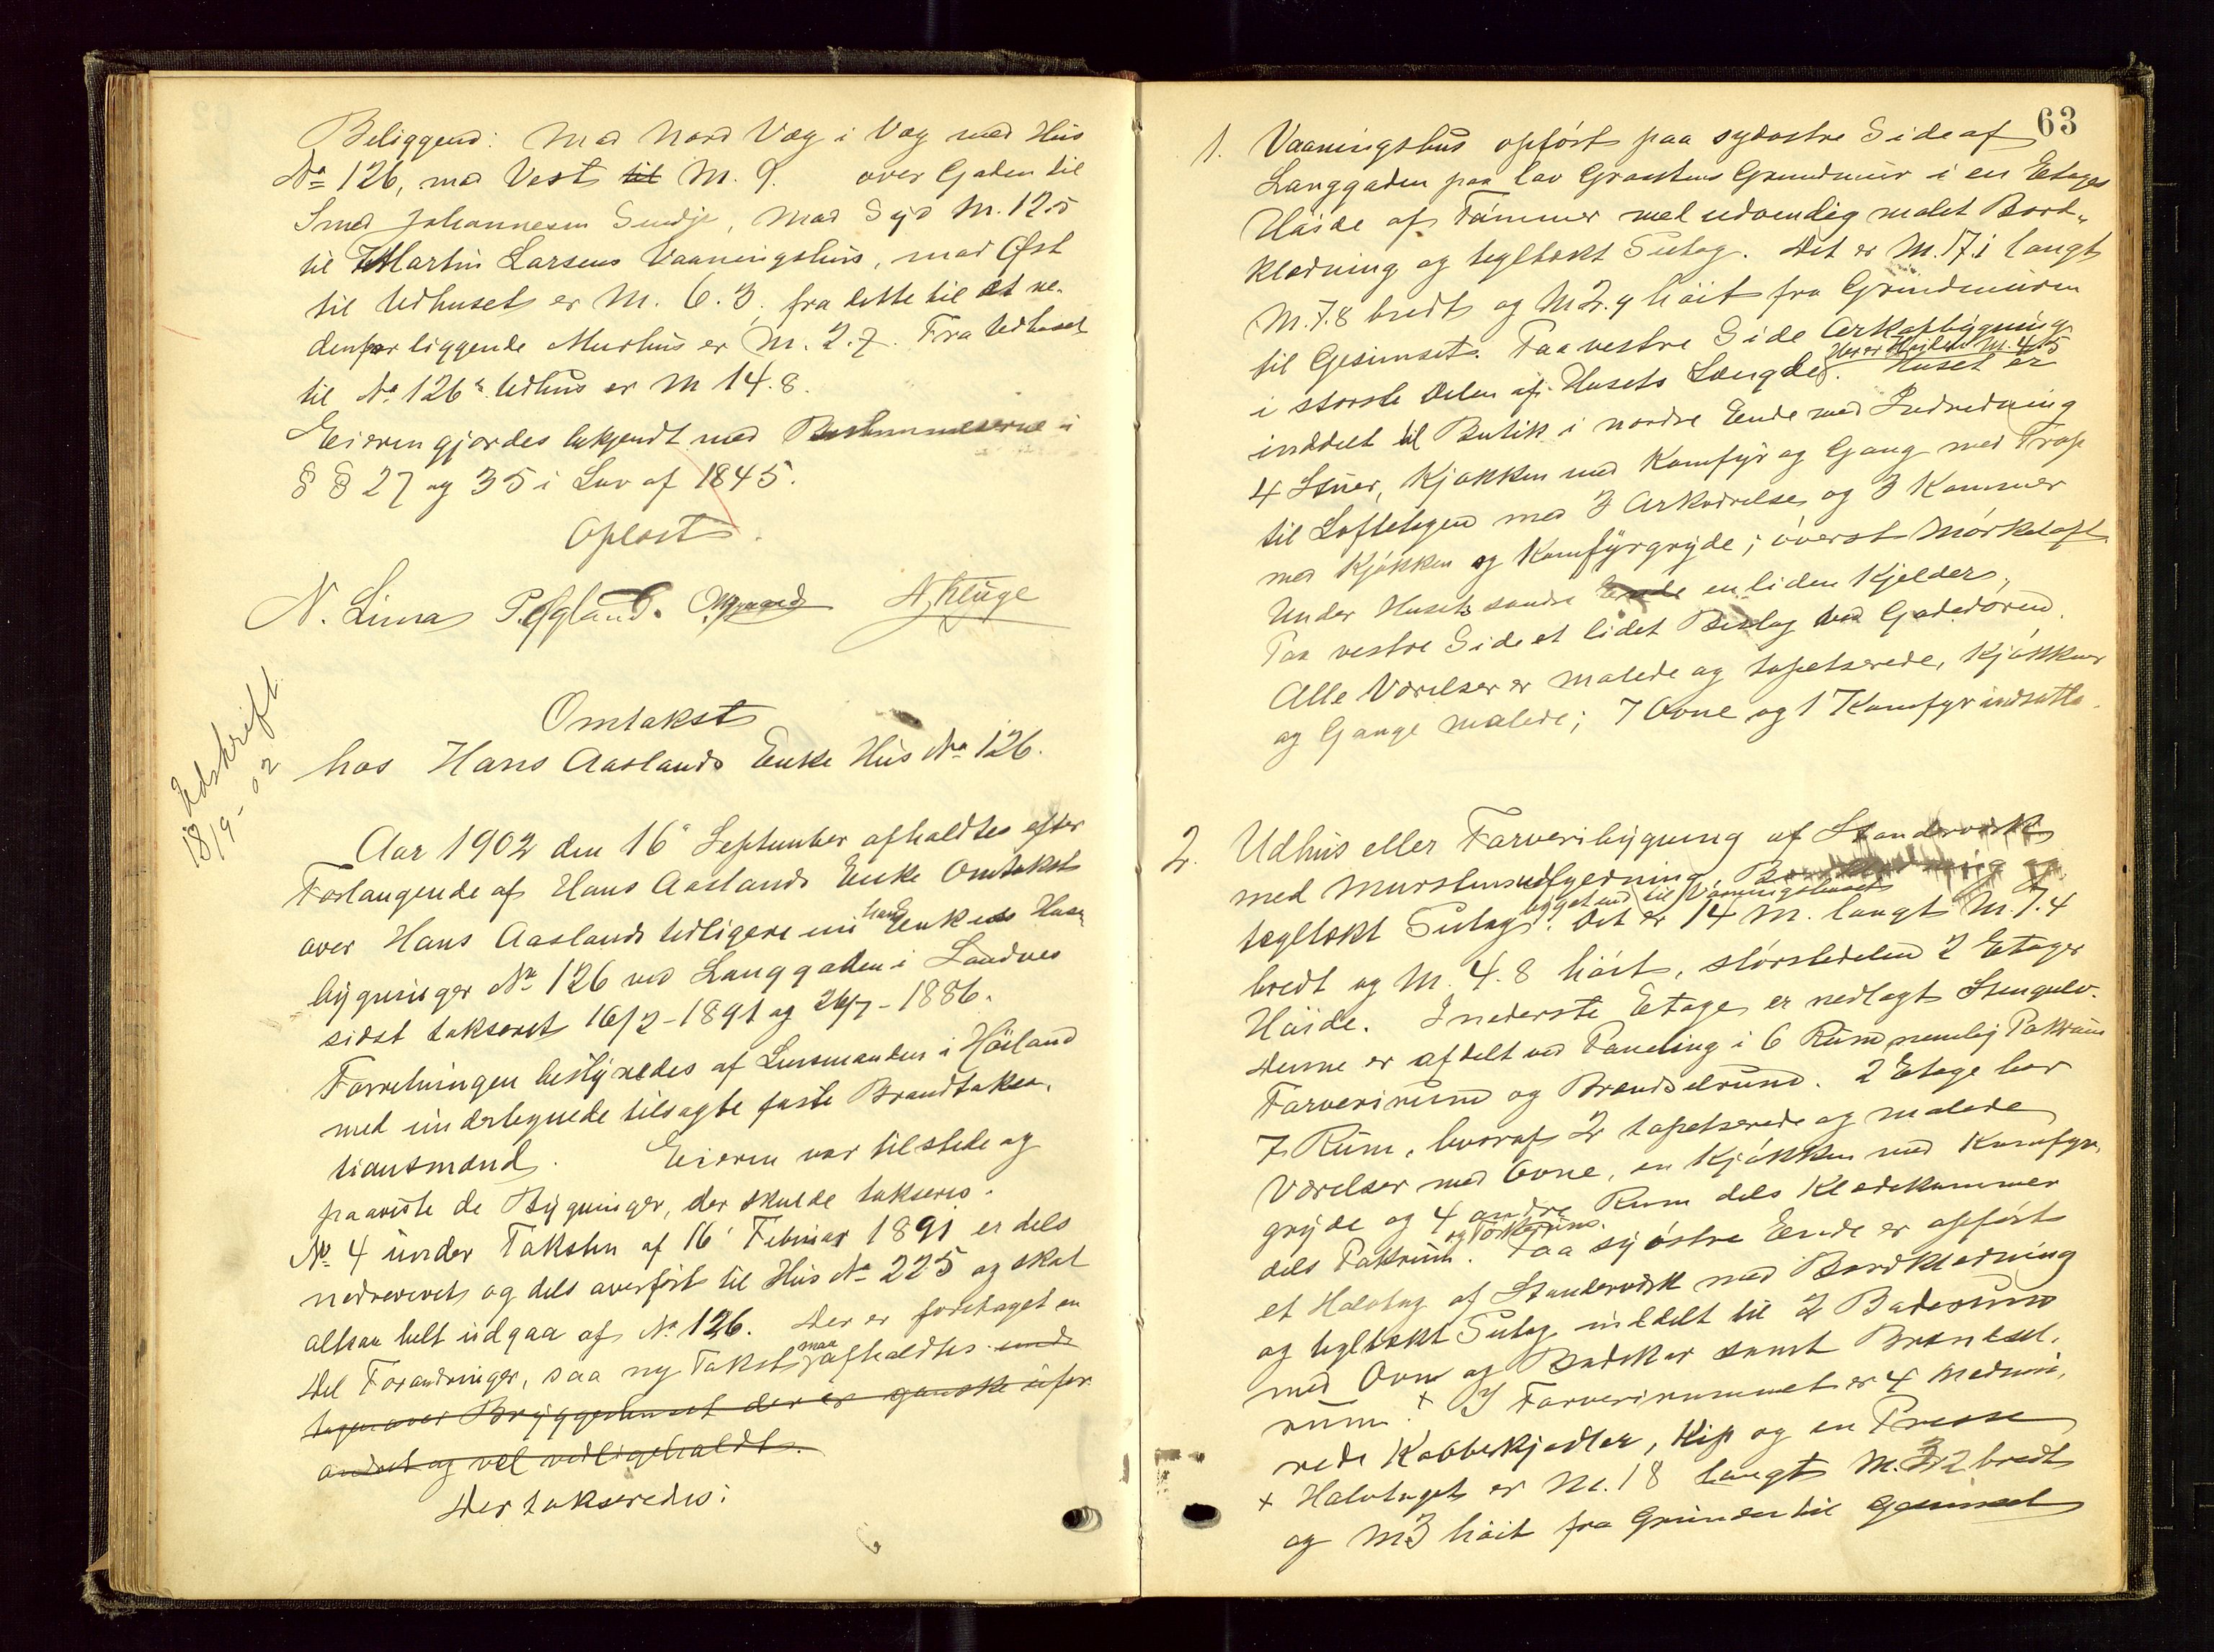 Beliggend: mod Nord Væg i Væg med Hus
No 126, mod Vest til M. 9. over Gaden til
Smed Johannesen Smedje, mod Syd M. 12.5
til Martin Larsens Vaaningshus, mod Øst
til Udhuset er M. 6.3, fra dette til et ne-
denfor liggende Murhus er M. 2.7. Fra Udhuset
til No 126s Udhus er M 14.8.
Eieren gjordes bekjendt med Bestemmelserne i
§ § 27 og 35 i Lov af 1845.
Oplæst
N. Lima P. Egland. A. Kluge
Omtakst
hos Hans Aaslands Enke Hus No 126.
Udskrift
18/9-02
Aar 1902 den 16de September afholdtes efter
Forlangende af Hans Aaslands Enke Omtakst
over Hans Aaslands tidligere nu hans Enkes Hus-
bygninger No 126 ved Langgaden i Sandnes
sidst takseret 16/2-1891 og 26/7-1886.
Forretningen bestyredes af Lensmanden i Høiland
med undertegnede tilsagte faste Brandtaksa-
tionsmænd. Eieren var tilstede og
paaviste de Bygninger, der skulde takseres.
No 4 under Taksten af 16 Februar 1891 er dels
nedrevet og dels overført til Hus No 225 og skal
altsaa helt udgaa af No 126. Der er foretaget en
Del Forandringer, saa ny Takst maa afholdtes und-
tagen over Bryggerhuset der er ganske ufor-
andret og vel vedligeholdt.
Der takseredes:
63
1. Vaaningshus opført paa sydøstre Side af
Langgaden paa lav Graastens Grundmur i en Etages
Høide af Tømmer med udvendig malet Bord-
klædning og tegltækt Sutag. Det er M. 17.1 langt
M. 7.8 bredt og M 2.9 høit fra Grundmuren
til Gesimset. Paa vestre Side Arkopbygning
i største Delen af Husets Længde. Her er Høiden M. 4.5 Huset er
inddelt til Butik i nordre Ende med Indredning
4 Stuer, Kjøkken med Komfyr og Gang med Trap
til Loftetagen med 3 Arkværelser og 3 Kammer
med Kjøkken og Komfyrgryde; øverst Mørkeloft
Under Husets søndre Ende en liden Kjelder.
Paa vestre Side et lidet Bislag ved Gadedøren.
Alle Værelser er malede og tapetserede, Kjøkkener
og Gange malede; 7 Ovne og 1 Komfyr indsatte.
2. Udhus eller Farveribygning af Standerværk
med Murstensudfyldning, Bordklædning og
tegltækt Sutag bygget ind til Vaaningshuset. Det er 14 M. langt M. 7.4
bredt og M. 4.8 høit, størstedelen 2 Etager
Høide. I nederste Etage er nedlagt Stengulv.
Denne er afdelt ved Paneling i 6 Rum nemlig Pakrum
Farverirum og Brændselrum. 2 Etage har
7 Rum, hvoraf 2 tapetserede og malede
Værelser med Ovne, en Kjøkken med Komfyr
gryde og 4 andre Rum dels Klædekammer
dels Pakrum og Tørkerum. Paa syøstre Ende er opført
et Halvtag af Standerværk med Bordklædning
og tegltækt Sutag inddelt til 2 Baderum
med Ovn og Badekar samt Brændsel-
rum. + I Farverirummet er 4 indmu-
rede Kobberkjedler, Kip og en Presse
+ Halvtaget er M. 18 langt M. 3.2 bredt
og M 3 høit fra Grunden til Gesimset